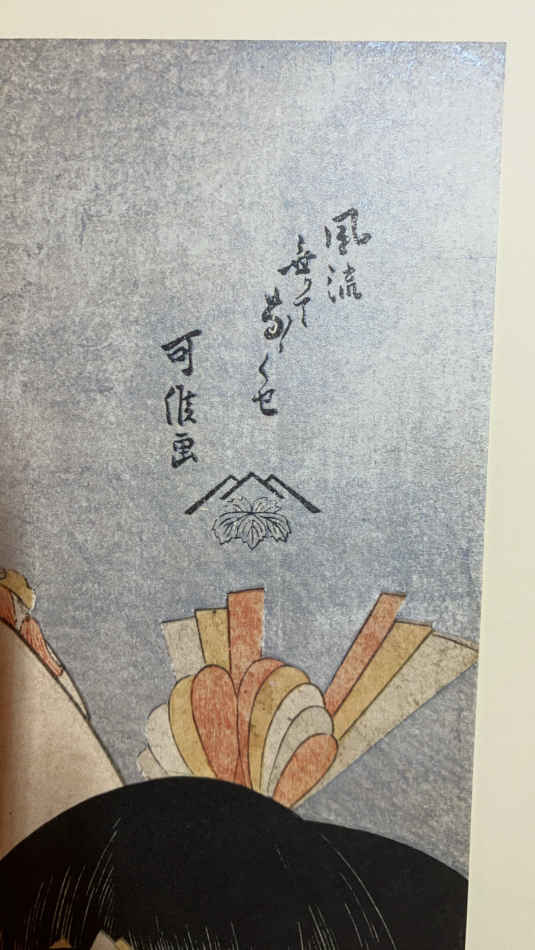 風流
無くて
なゝくせ
可候画